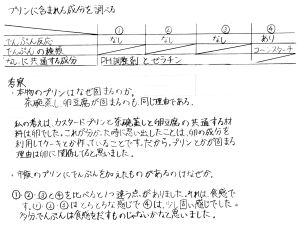 プリンに含まれる成分を調べる
① ② ③ ④
でんぷん反応 なし なし なし あり
でんぷんの種類 コーンスターチ
なしに共通する成分 PH調整剤とゼラチン
考察
・本物のプリンはなぜ固まるのか。
茶碗蒸し、卵豆腐が固まるのも、同じ理由である。
私の考えは、カスタードプリンと茶碗蒸しと卵豆腐の共通する材
料は卵でした。これが分かった時に思い出したことは、卵の成分を
利用してケーキとか作っていることです。だから、プリンとかが固まる
理由は卵に関係してると思いました。
・市販のプリンにでんぷんを加えたものがあるのはなぜか。
①②③と④を比べると1つ違う点がありました。それは、食感で
す。①②③はとろとろな感じで④は、少し固い感じでした。
多分でんぷんは食感をだすものじゃないかなと思いました。